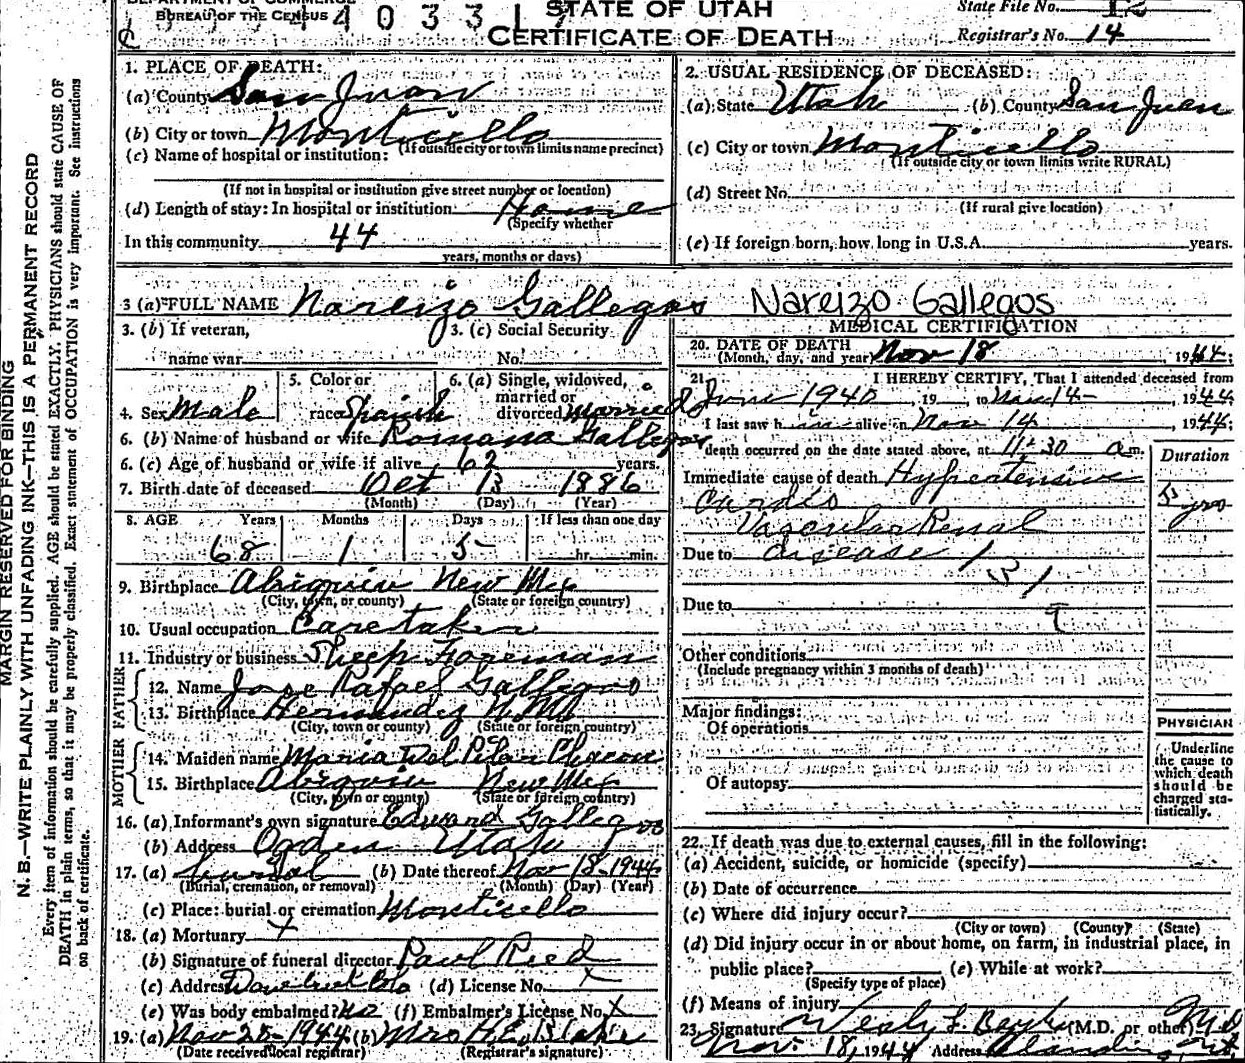 DEPARTMENT OF COMMERCE
BUREAU OF THE CENSUS
4033
STATE OF UTAH
CERTIFICATE OF DEATH
State File No. 12
Registrar's No. 14
MARGIN RESERVED FOR BINDING
N. B.—WRITE PLAINLY WITH UNFADING INK—THIS IS A PERMANENT RECORD
Every item of information should be carefully supplied. AGE should be stated EXACTLY. PHYSICIANS should state CAUSE OF
DEATH in plain terms, so that it may be properly classified. Exact statement of OCCUPATION is very important. See instructions
on back of certificate.
1. PLACE OF DEATH:
(a) County San Juan
(b) City or town Monticello
(If outside city or town limits name precinct)
(c) Name of hospital or institution:
(If not in hospital or institution give street number or location)
(d) Length of stay: In hospital or institution Home
(Specify whether
In this community 44
years, months or days)
2. USUAL RESIDENCE OF DECEASED:
(a) State Utah (b) County San Juan
(c) City or town Monticello
(If outside city or town limits write RURAL)
(d) Street No.
(If rural give location)
(e) If foreign born, how long in U.S.A. years.
3 (a) FULL NAME Nareizo Gallegos Nareizo Gallegos
3. (b) If veteran, 3. (c) Social Security
name war No.
4. Sex Male 5. Color or race Spanish 6. (a) Single, widowed, married or divorced Married
6. (b) Name of husband or wife Romana Gallegos
6. (c) Age of husband or wife if alive 62 years.
7. Birth date of deceased Oct 13 1886
(Month) (Day) (Year)
8. AGE Years Months Days If less than one day
68 1 5 hr. min.
9. Birthplace Abiquiu New Mex
(City, town, or county) (State or foreign country)
10. Usual occupation Caretaker
11. Industry or business Sheep Foreman
FATHER
12. Name Jose Rafael Gallegos
13. Birthplace Hernandez N. M
(City, town or county) (State or foreign country)
MOTHER
14. Maiden name Maria Del Pilar Chacon
15. Birthplace Abiquiu New Mex
(City, town or county) (State or foreign country)
16. (a) Informant's own signature Edward Gallegos
(b) Address Ogden Utah
17. (a) burial (b) Date thereof Nov 18-1944
(Burial, cremation, or removal) (Month) (Day) (Year)
(c) Place: burial or cremation Monticello
18. (a) Mortuary X
(b) Signature of funeral director Paul Reed
(c) Address Dove Creek Colo (d) License No. X
(e) Was body embalmed? no (f) Embalmer's License No. X
19. (a) Nov 25-1944 (b) Mrs H.E. Blake
(Date received local registrar) (Registrar's signature)
MEDICAL CERTIFICATION
20. DATE OF DEATH
(Month, day, and year) Nov 18, 1944;
21 I HEREBY CERTIFY, That I attended deceased from
June 1940, 19 to Nov 14 1944
I last saw h im alive on Nov 14 1944;
death occurred on the date stated above, at 11:30 a m.
Duration
Immediate cause of death Hypertensive
Cardio 5 yrs
Vascular Renal
Due to disease
131
Due to
9
Other conditions
(Include pregnancy within 3 months of death)
Major findings:
Of operations
Of autopsy
PHYSICIAN
Underline
the cause to
which death
should be
charged sta-
tistically.
22. If death was due to external causes, fill in the following:
(a) Accident, suicide, or homicide (specify)
(b) Date of occurrence
(c) Where did injury occur?
(City or town) (County) (State)
(d) Did injury occur in or about home, on farm, in industrial place, in
public place? (e) While at work?
(Specify type of place)
(f) Means of injury
23. Signature (M.D. or other) M.D.
Nov. 18, 1944 Address Blanding